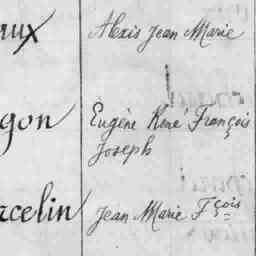 aux Alexis Jean Marie
gon Eugène René François
Joseph
rcelin Jean Marie Fçois